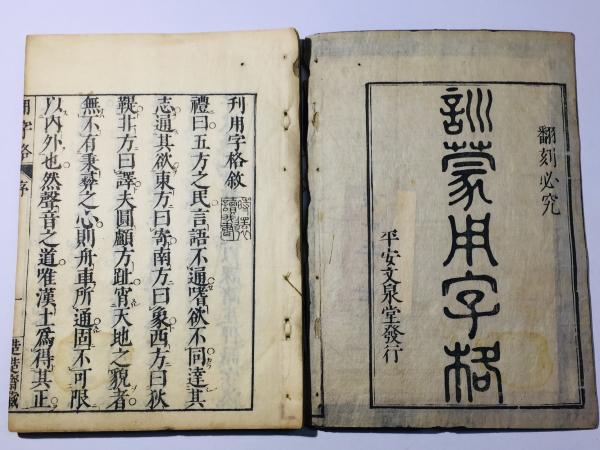 翻刻必究
訓蒙用字格
平安文泉堂發行
刊用字格敘
禮曰五方之民言語不通嗜欲不同達其
志通其欲東方曰寄南方曰象西方曰狄
鞮北方曰譯夫圓顱方趾宵天地之貌者
無不有秉彝之心則舟車所通固不可限
以内外也然聲音之道唯漢土爲得其正
用字格 序